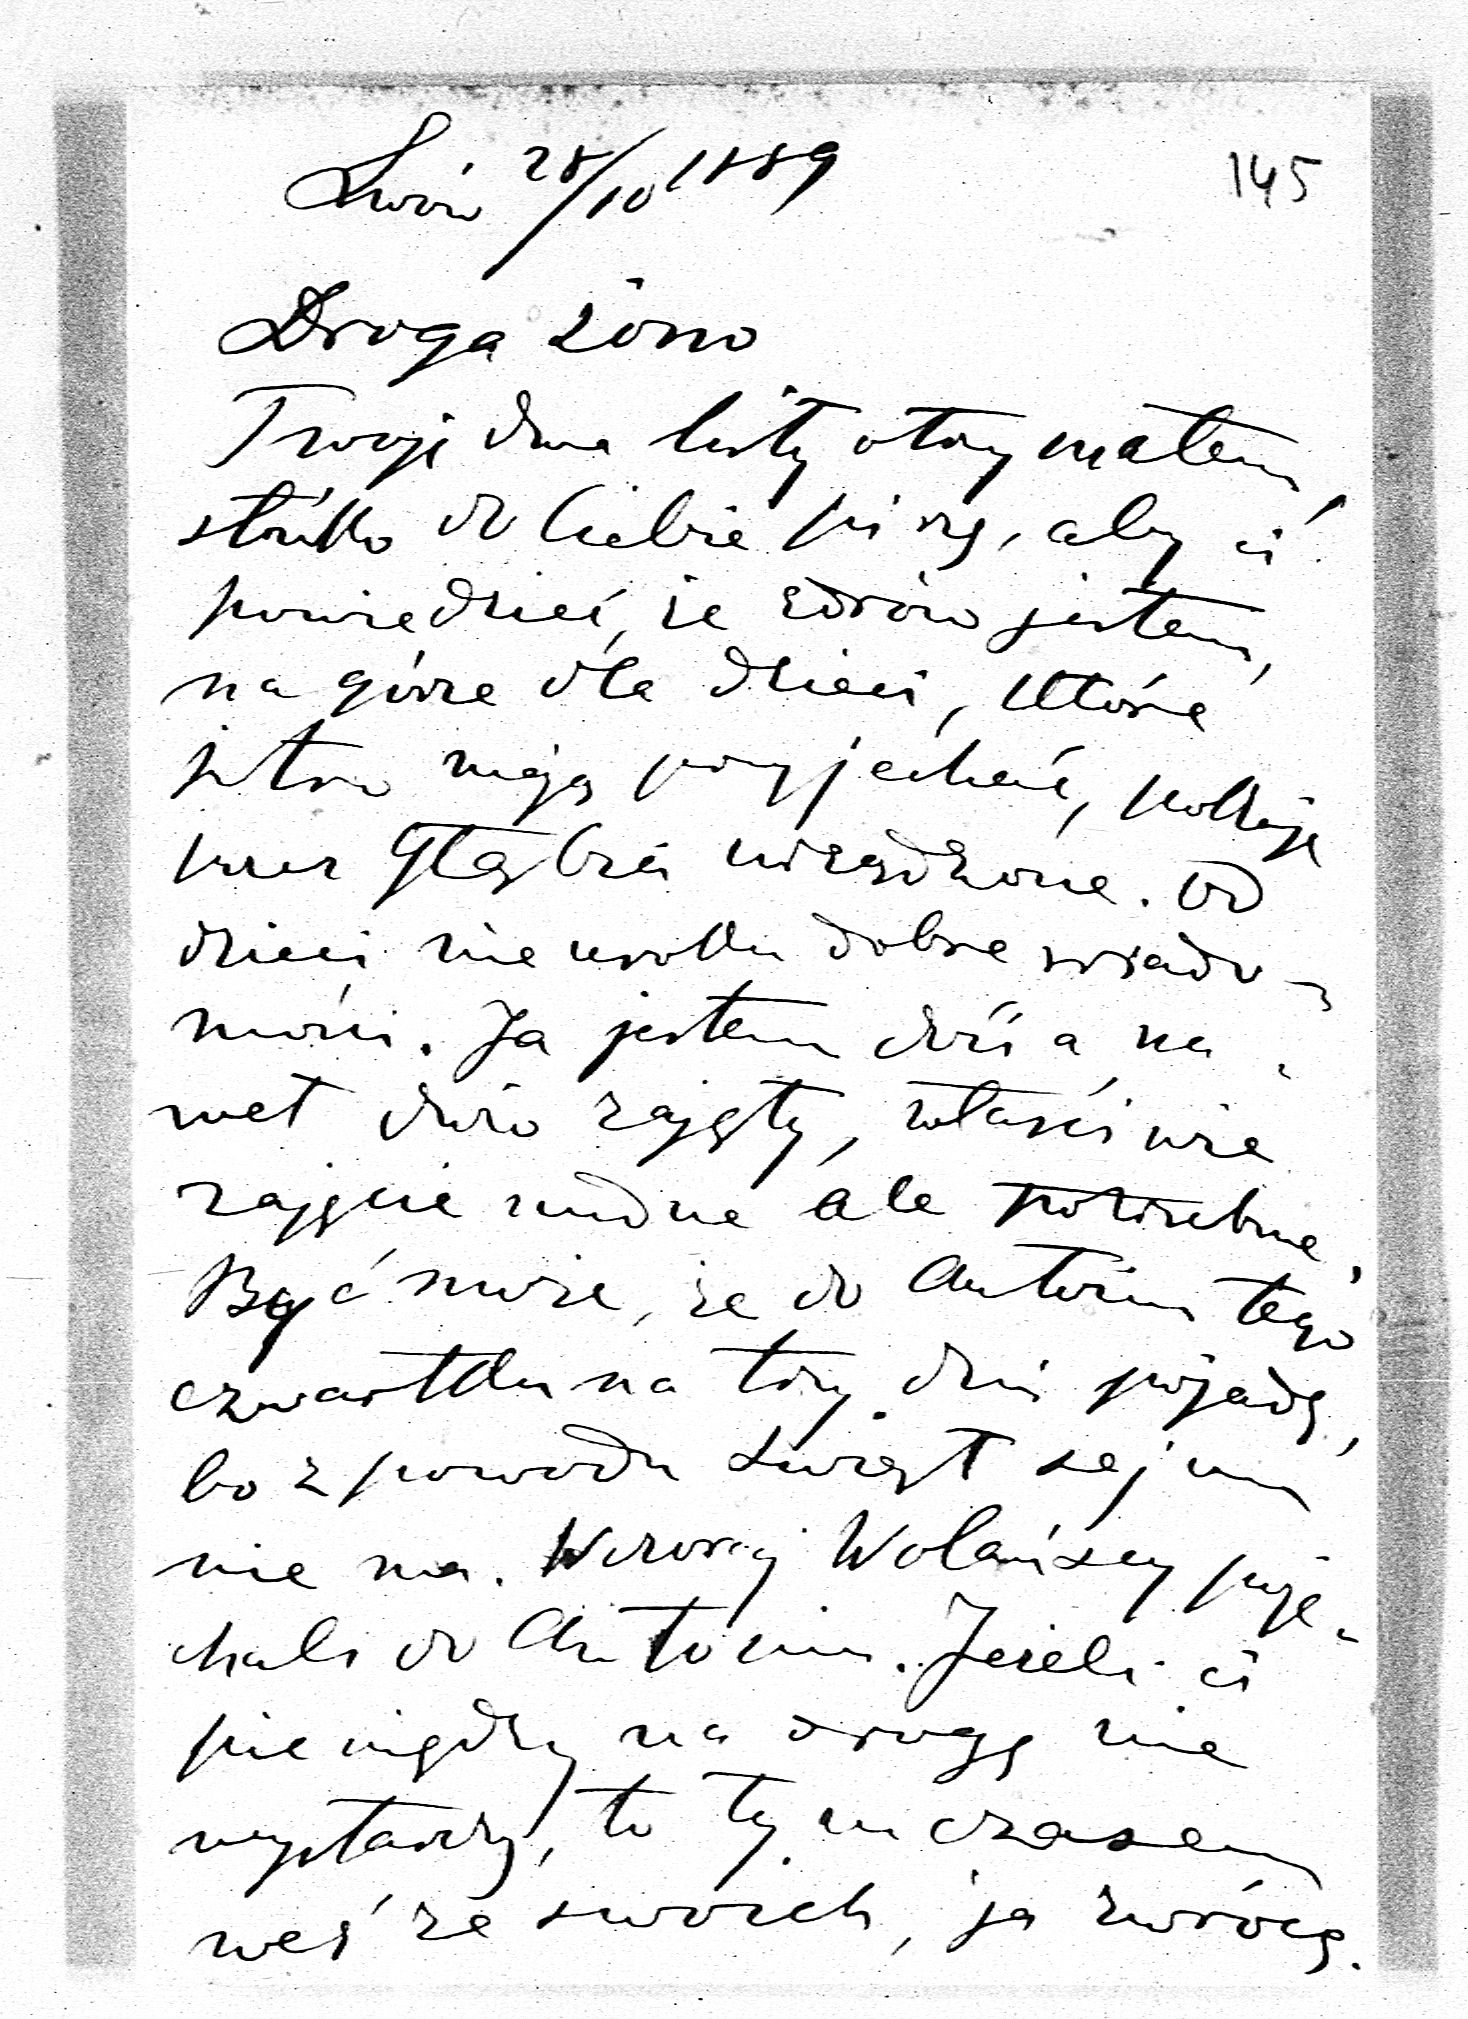 Lwów 28/10 1889
145
Droga żono
Twoje dwa listy otrzymałem,
krótko do Ciebie piszę, aby ci
powiedzieć, że zdrów jestem,
na górze dla dzieci, które
jutro mają przyjechać, pokoje
przez urządzone. Od
dzieci nie wolku dobre wiado-
mości. Ja jestem dziś a na-
wet dużo zajęty, właściwie
zajęcie nudne ale potrzebne.
Być może, że do Antonin tego
czwartku na trzy dni pojadę,
bo z powodu świąt sejmu
nie ma. Wczoraj Wolańscy poje-
chali do Antonin. Jeżeli ci
pieniędzy na drogę nie
wystarczy, to tymczasem
weź ze swoich, ja zwrócę.